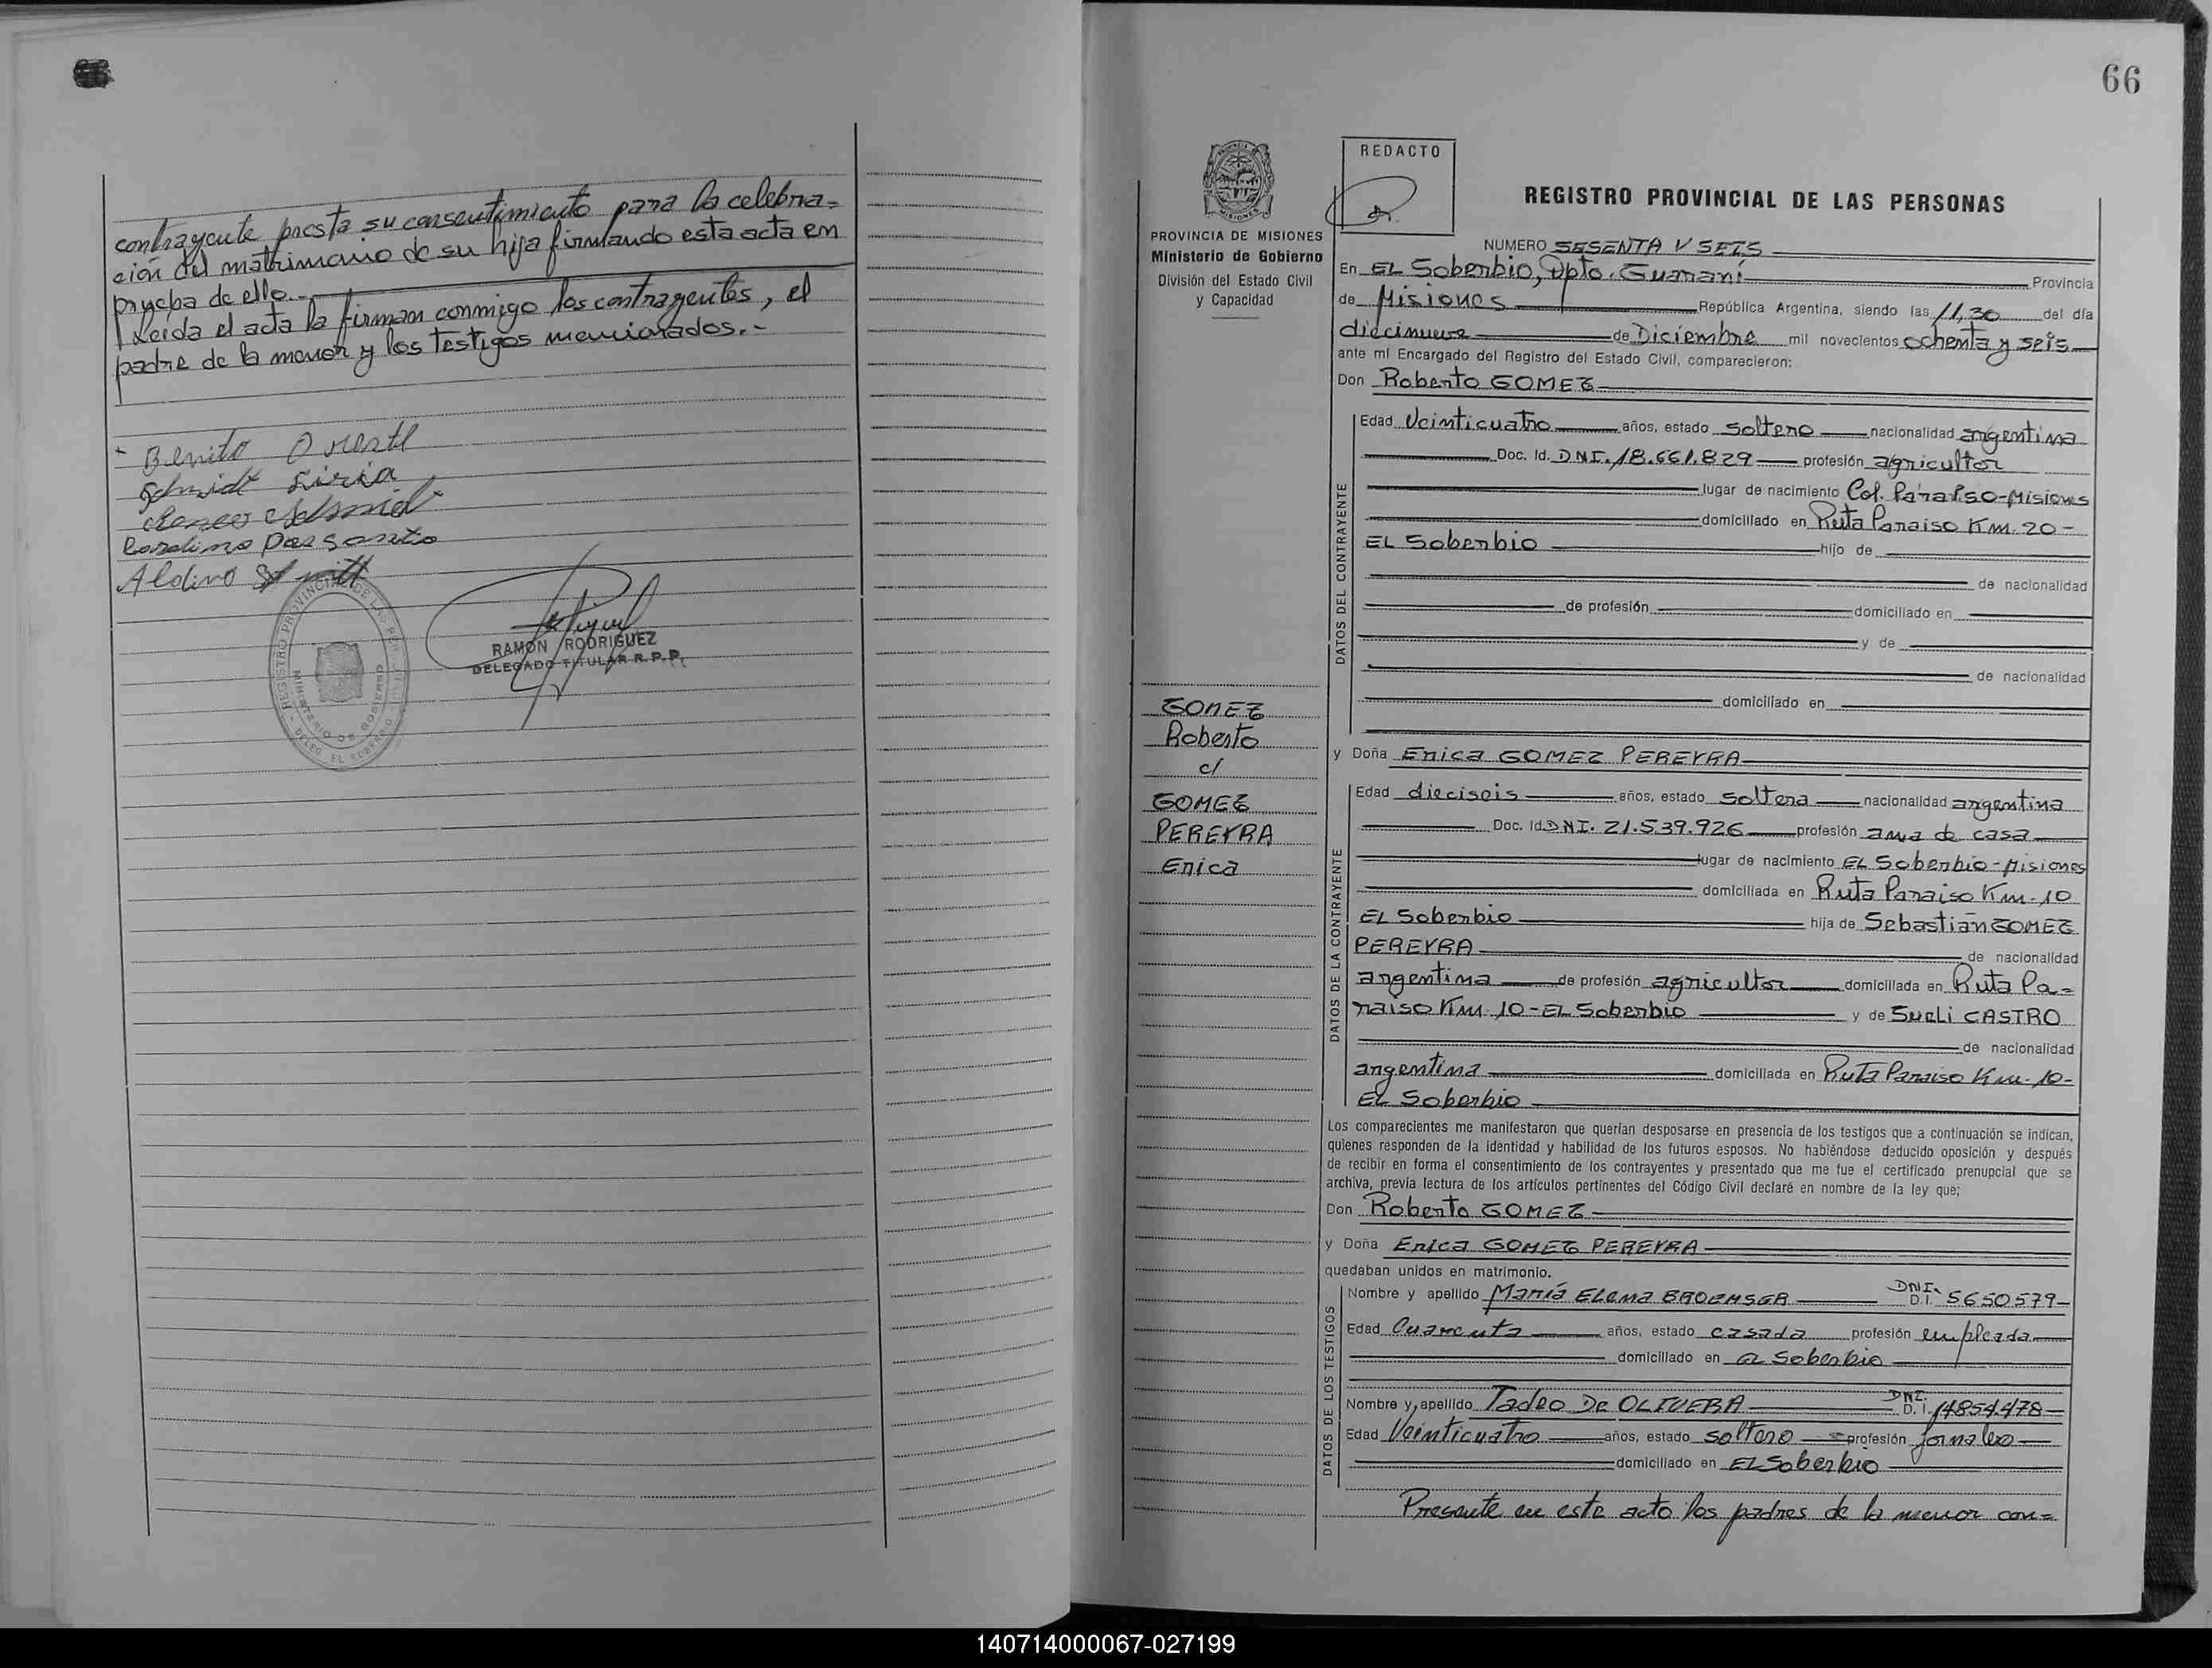 contrayente presta su consentimiento para la celebra=
ción del matrimonio de su hija firmando esta acta en
prueba de ello.-
Leida el acta la firman conmigo los contrayentes, el
padre de la menor y los testigos mencionados.-
Benito
Schmidt Liria
Aldino
REGISTRO PROVINCIAL DE LAS PERSONAS
MINISTERIO DE GOBIERNO
DELEG. EL SOBERBIO
RAMON RODRIGUEZ
DELEGADO TITULAR R.P.P.
66
PROVINCIA DE MISIONES
Ministerio de Gobierno
División del Estado Civil
y Capacidad
GOMEZ
Roberto
c/
GOMEZ
PEREYRA
Erica
REDACTO
REGISTRO PROVINCIAL DE LAS PERSONAS
NUMERO SESENTA Y SEIS
En EL Soberbio, Dpto. Guaraní Provincia
de Misiones República Argentina, siendo las 11,30 del día
diecinueve de Diciembre mil novecientos ochenta y seis
ante mí Encargado del Registro del Estado Civil, comparecieron:
Don Roberto GOMEZ
DATOS DEL CONTRAYENTE
Edad Veinticuatro años, estado soltero nacionalidad argentina
Doc. Id. DNI. 18.661.829 profesión agricultor
lugar de nacimiento Col. Paraíso-Misiones
domiciliado en Ruta Paraiso Km. 20-
EL Soberbio hijo de
de nacionalidad
de profesión domiciliado en
y de
de nacionalidad
domiciliado en
y Doña Erica GOMEZ PEREYRA
DATOS DE LA CONTRAYENTE
Edad dieciseis años, estado soltera nacionalidad argentina
Doc. Id. DNI. 21.539.926 profesión ama de casa
lugar de nacimiento EL Soberbio-Misiones
domiciliada en Ruta Paraiso Km-10
EL Soberbio hija de Sebastián GOMEZ
PEREYRA de nacionalidad
argentina de profesión agricultor domiciliada en Ruta Pa=
raiso Km. 10-EL Soberbio y de Sueli CASTRO
de nacionalidad
argentina domiciliada en Ruta Paraiso Km-10-
EL Soberbio
Los comparecientes me manifestaron que querían desposarse en presencia de los testigos que a continuación se indican,
quienes responden de la identidad y habilidad de los futuros esposos. No habiéndose deducido oposición y después
de recibir en forma el consentimiento de los contrayentes y presentado que me fue el certificado prenupcial que se
archiva, previa lectura de los artículos pertinentes del Código Civil declaré en nombre de la ley que;
Don Roberto GOMEZ
y Doña Erica GOMEZ PEREYRA
quedaban unidos en matrimonio.
DATOS DE LOS TESTIGOS
Nombre y apellido María Elena BROEMSER DNI. D.I. 5650579
Edad Cuarenta años, estado casada profesión empleada
domiciliado en El Soberbio
Nombre y apellido Tadeo De OLIVERA DNI. D.I. 14854.478
Edad Veinticuatro años, estado soltero profesión jornalero
domiciliado en EL Soberbio
Presente en este acto los padres de la menor con=
140714000067-027199